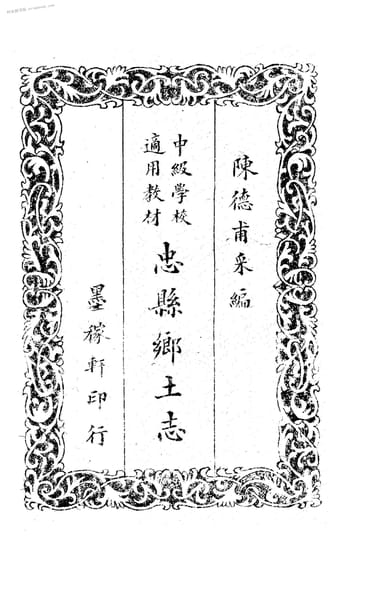 陳德甫采編
中級學校
適用教材
忠縣鄉王志
墨稼軒印行